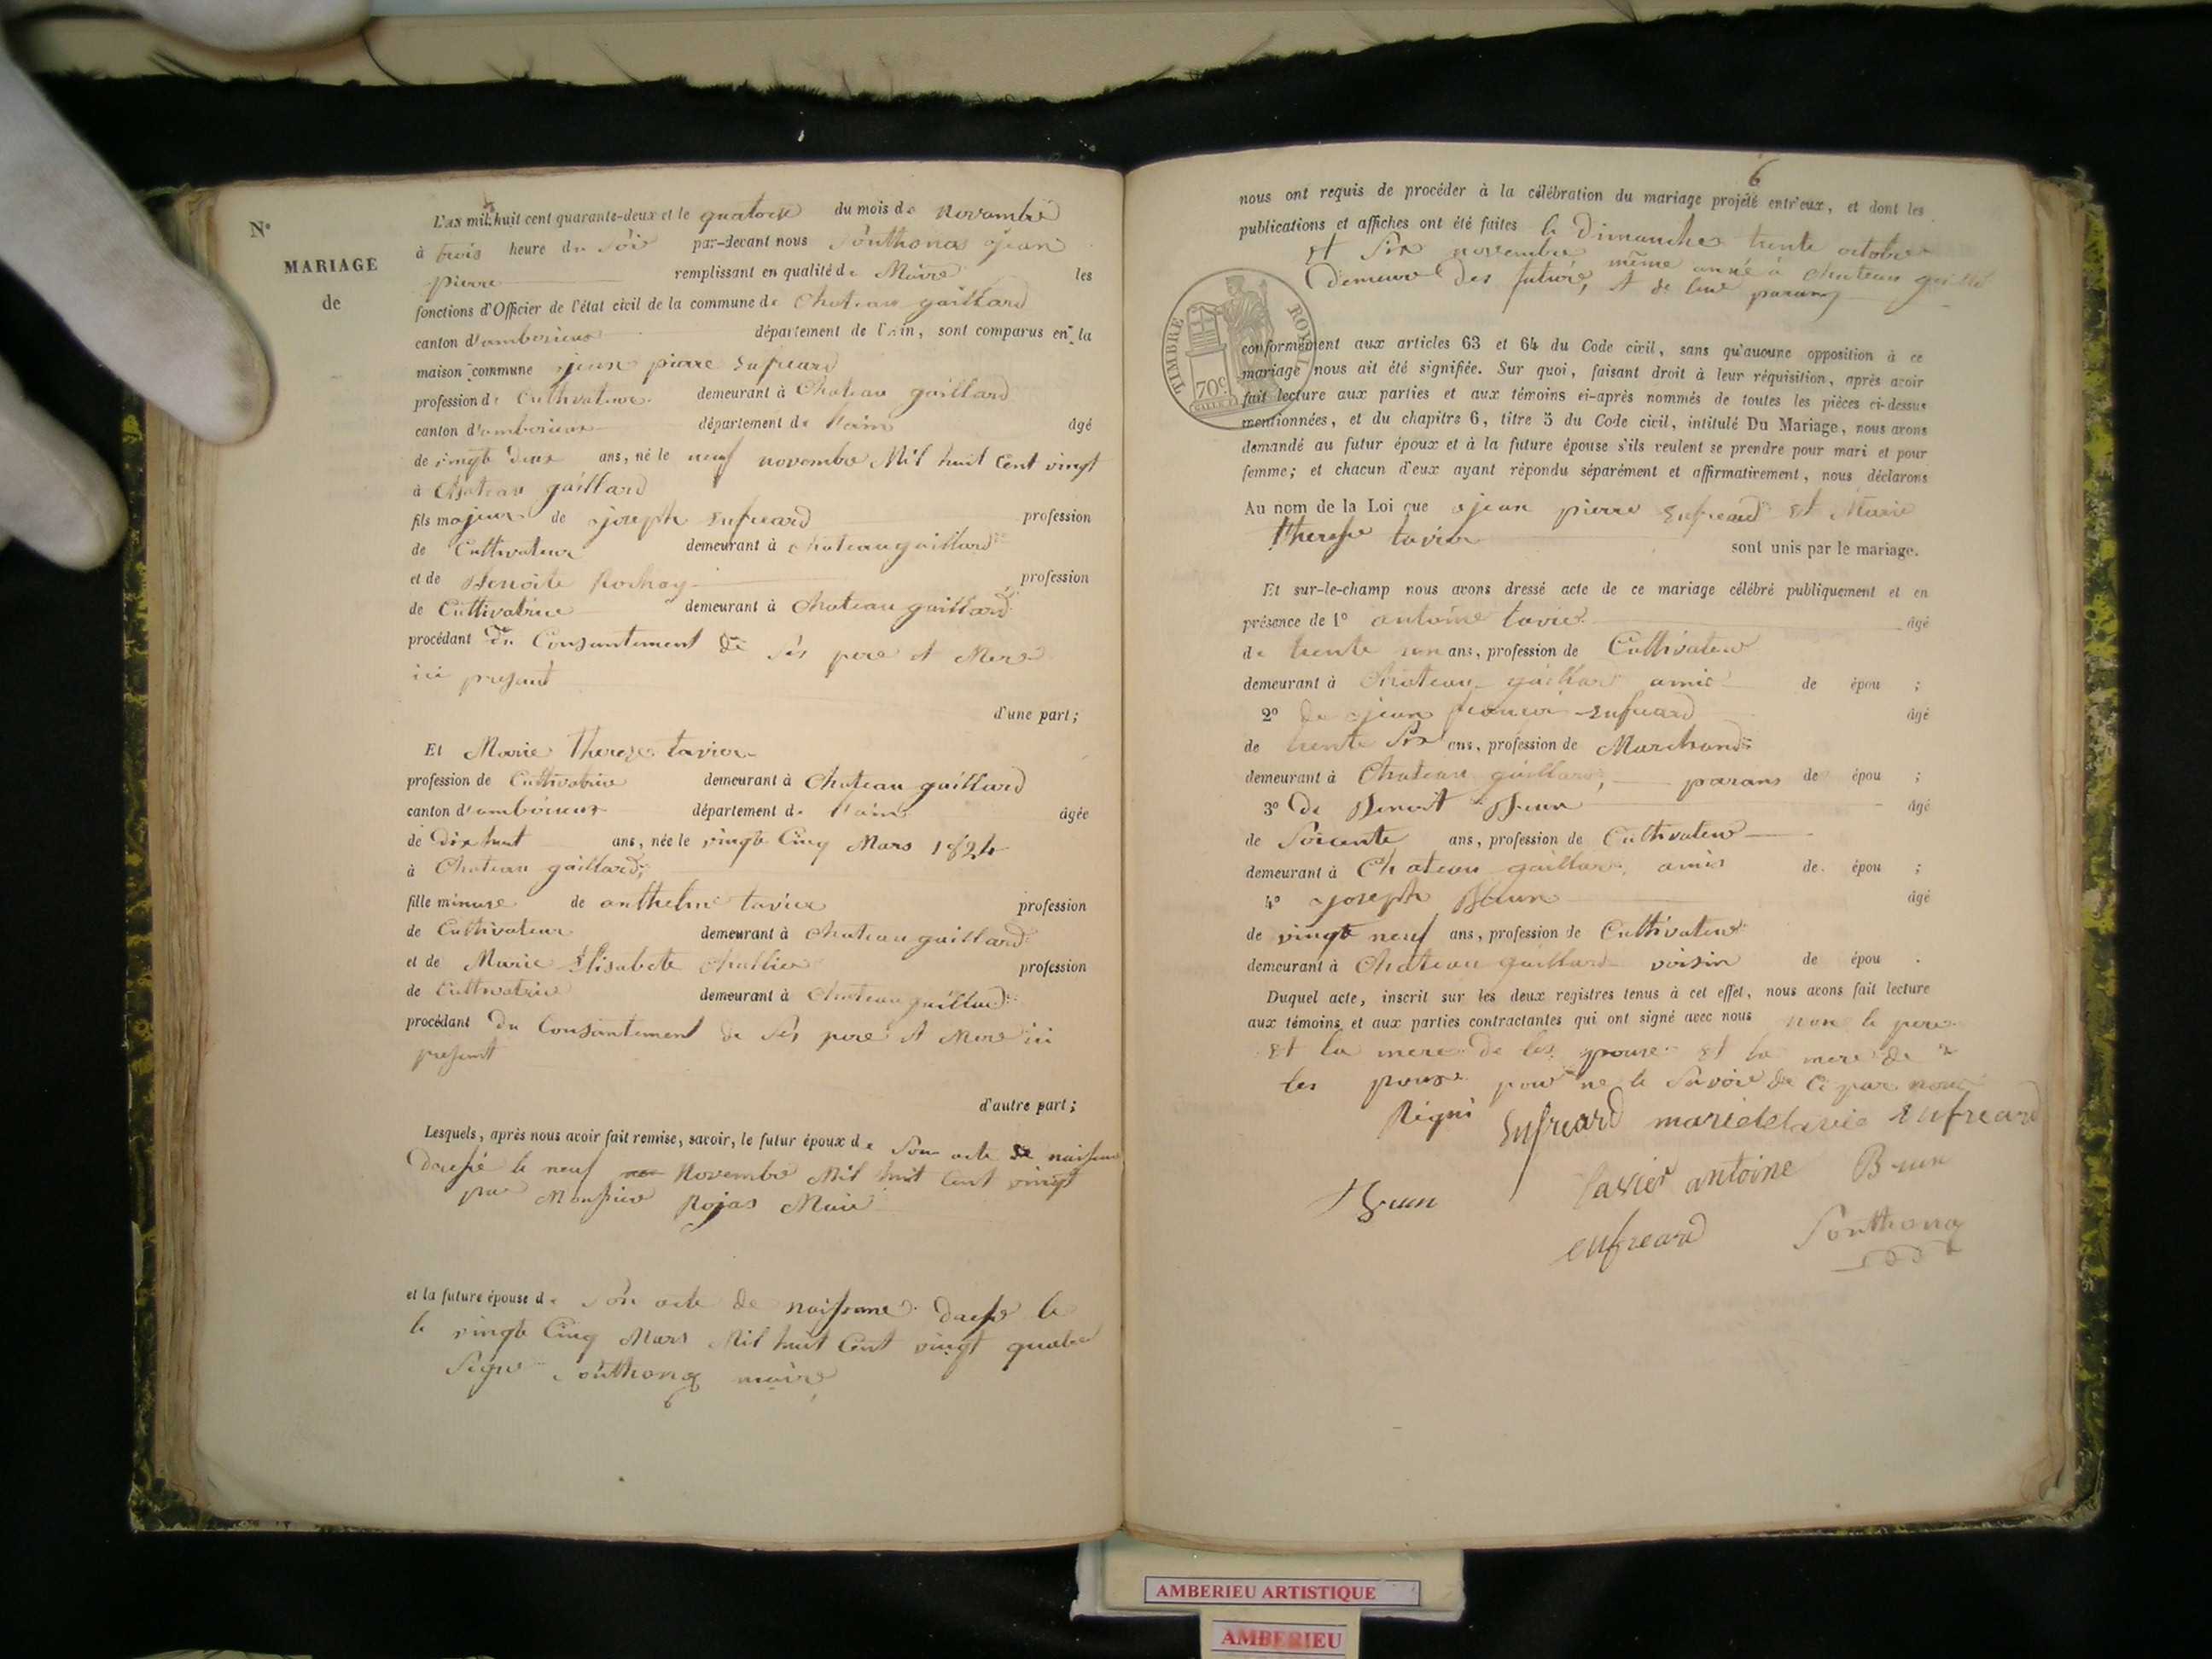 N°
MARIAGE
de
L'an mil huit cent quarante-deux et le quatorze du mois de Novembre
à trois heure du soir par-devant nous Sonthonas jean
pierre remplissant en qualité de Maire les
fonctions d'Officier de l'état civil de la commune de Chateau gaillard
canton d'amberieux département de l'Ain, sont comparus en la
maison commune jean pierre Enfreard
profession de Cultivateur demeurant à Chateau gaillard
canton d'amberieux département de l'ain âgé
de vingt deux ans, né le neuf novembre Mil huit Cent vingt
à Chateau gaillard
fils majeur de joseph Enfreard profession
de Cultivateur demeurant à Chateau gaillard
et de Benoite profession
de Cultivatrice demeurant à Chateau gaillard
procédant du Consantement de ses pere et Mere
ici presant
d'une part;
Et Marie Therese tavier
profession de Cultivatrice demeurant à Chateau gaillard
canton d'amberieux département de l'ain âgée
de dix huit ans, née le vingt Cinq Mars 1824
à Chateau gaillard,
fille minure de anthelme tavier profession
de Cultivateur demeurant à Chateau gaillard
et de Marie Elisabete Challier profession
de Cultivatrice demeurant à Chateau gaillard
procédant du Consantement de ses pere et Mere ici
presant
d'autre part;
Lesquels, après nous avoir fait remise, savoir, le futur époux de Son acte de naissance
le neuf Novembre Mil huit Cent vingt
par Monsieur Rojas Maire
et la future épouse de son acte de naissance le
le vingt Cinq Mars Mil huit Cent vingt quatre
Signe Sonthonas maire
6
nous ont requis de procéder à la célébration du mariage projeté entr'eux, et dont les
publications et affiches ont été faites le Dimanches trente octobre
et Six novembre même année à Chateau gaillard
Demeure des future, et de leur parans
TIMBRE ROYAL
70c
conformément aux articles 63 et 64 du Code civil, sans qu'aucune opposition à ce
mariage nous ait été signifiée. Sur quoi, faisant droit à leur réquisition, après avoir
fait lecture aux parties et aux témoins ci-après nommés de toutes les pièces ci-dessus
mentionnées, et du chapitre 6, titre 5 du Code civil, intitulé Du Mariage, nous avons
demandé au futur époux et à la future épouse s'ils veulent se prendre pour mari et pour
femme; et chacun d'eux ayant répondu séparément et affirmativement, nous déclarons
Au nom de la Loi que jean pierre Enfreard et Marie
therese tavier sont unis par le mariage.
Et sur-le-champ nous avons dressé acte de ce mariage célébré publiquement et en
présence de 1° antoine tavier âgé
de trente un ans, profession de Cultivateur
demeurant à Chateau gaillard amie de épou ;
2° de jean Enfreard âgé
de trente Six ans, profession de Marchand
demeurant à Chateau gaillard, parans de épou ;
3° De Benoit Brun âgé
de Soicente ans, profession de Cultivateur
demeurant à Chateau gaillard, amis de épou ;
4° joseph Brun âgé
de vingt neuf ans, profession de Cultivateur
demeurant à Chateau gaillard voisin de épou .
Duquel acte, inscrit sur les deux registres tenus à cet effet, nous avons fait lecture
aux témoins et aux parties contractantes qui ont signé avec nous non le pere
et la mere de les pouse et la mere de
les pouse pour ne le Savoir de ce par nous
Enfreard Enfreard
Tavier antoine Brun
Brun
enfreard Sonthonas
AMBERIEU ARTISTIQUE
AMBERIEU